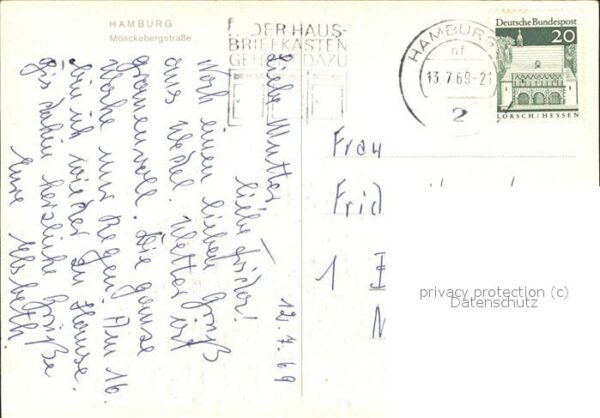 HAMBURG
Mönckebergstraße
DER HAUS-
BRIEFKASTEN
GEHÖRT DAZU
HAMBURG
nf
13.7.69-21
2
Deutsche Bundespost
20
LORSCH/HESSEN
12.7.69
Liebe Mutter,
liebe
Noch einen lieben Gruß
aus Wedel. Wetter ist
grauenvoll. Die ganze
Woche nur Regen! Am 16.
bin ich wieder zu Hause.
Bis dahin herzliche Grüße
Eure Elsbeth
Frau
Frid
1
privacy protection (c)
Datenschutz